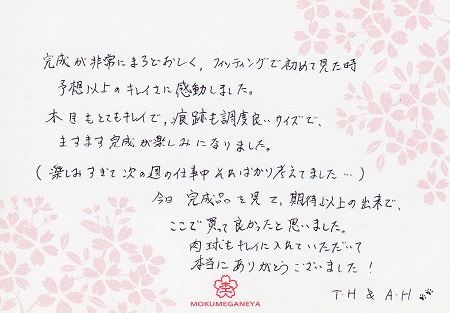 完成が非常にまちどおしく，フィッティングで初めて見た時
予想以上のキレイさに感動しました。
木目もとてもキレイで，痕跡も調度良いサイズで、
ますます完成が楽しみになりました。
(楽しみすぎて次の週の仕事中そればかり考えてました…)
今日 完成品を見て、期待以上の出来で、
ここで買って良かったと思いました。
肉球もキレイに入れていただいて
本当にありがとうございました！
T·H & A·H
MOKUMEGANEYA